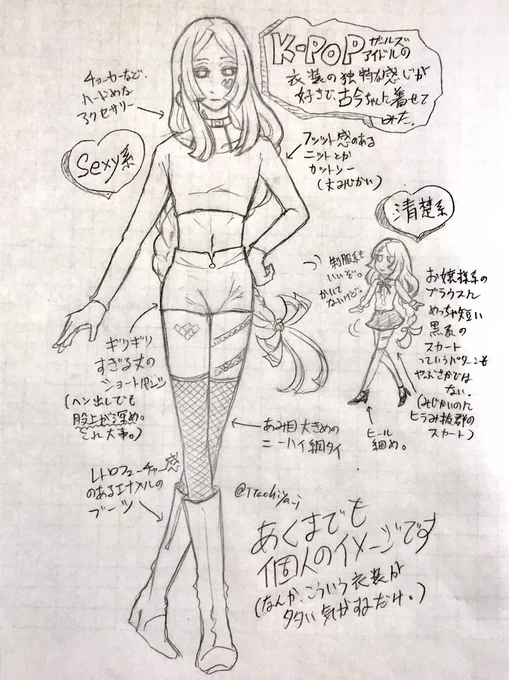 K-POP ガールズ
アイドルの
衣装の独特な感じが
好きで、古今ちゃんに着せて
みた。
チョーカーなど、
ハードめな
アクセサリー
Sexy系
フィット感のある
ニットとか
カットソー
(丈みじかい)
清楚系
制服系も
いいぞ。
かいて
ないけど。
お嬢様系の
ブラウスに
めっちゃ短い
黒系の
スカート
っていうパターンも
やぶさかでは
ない。
(みじかいのに
ヒラみ抜群の
スカート)
ヒール
細め。
ギリギリ
すぎる丈の
ショートパンツ
(ヘソ出しでも
股上が深め。
それ大事。)
あみ目大きめの
ニーハイ網タイ
レトロフューチャー感
のあるエナメルの
ブーツ
あくまでも
個人のイメージです
(なんか、こういう衣装が
多い気がするだけ。)